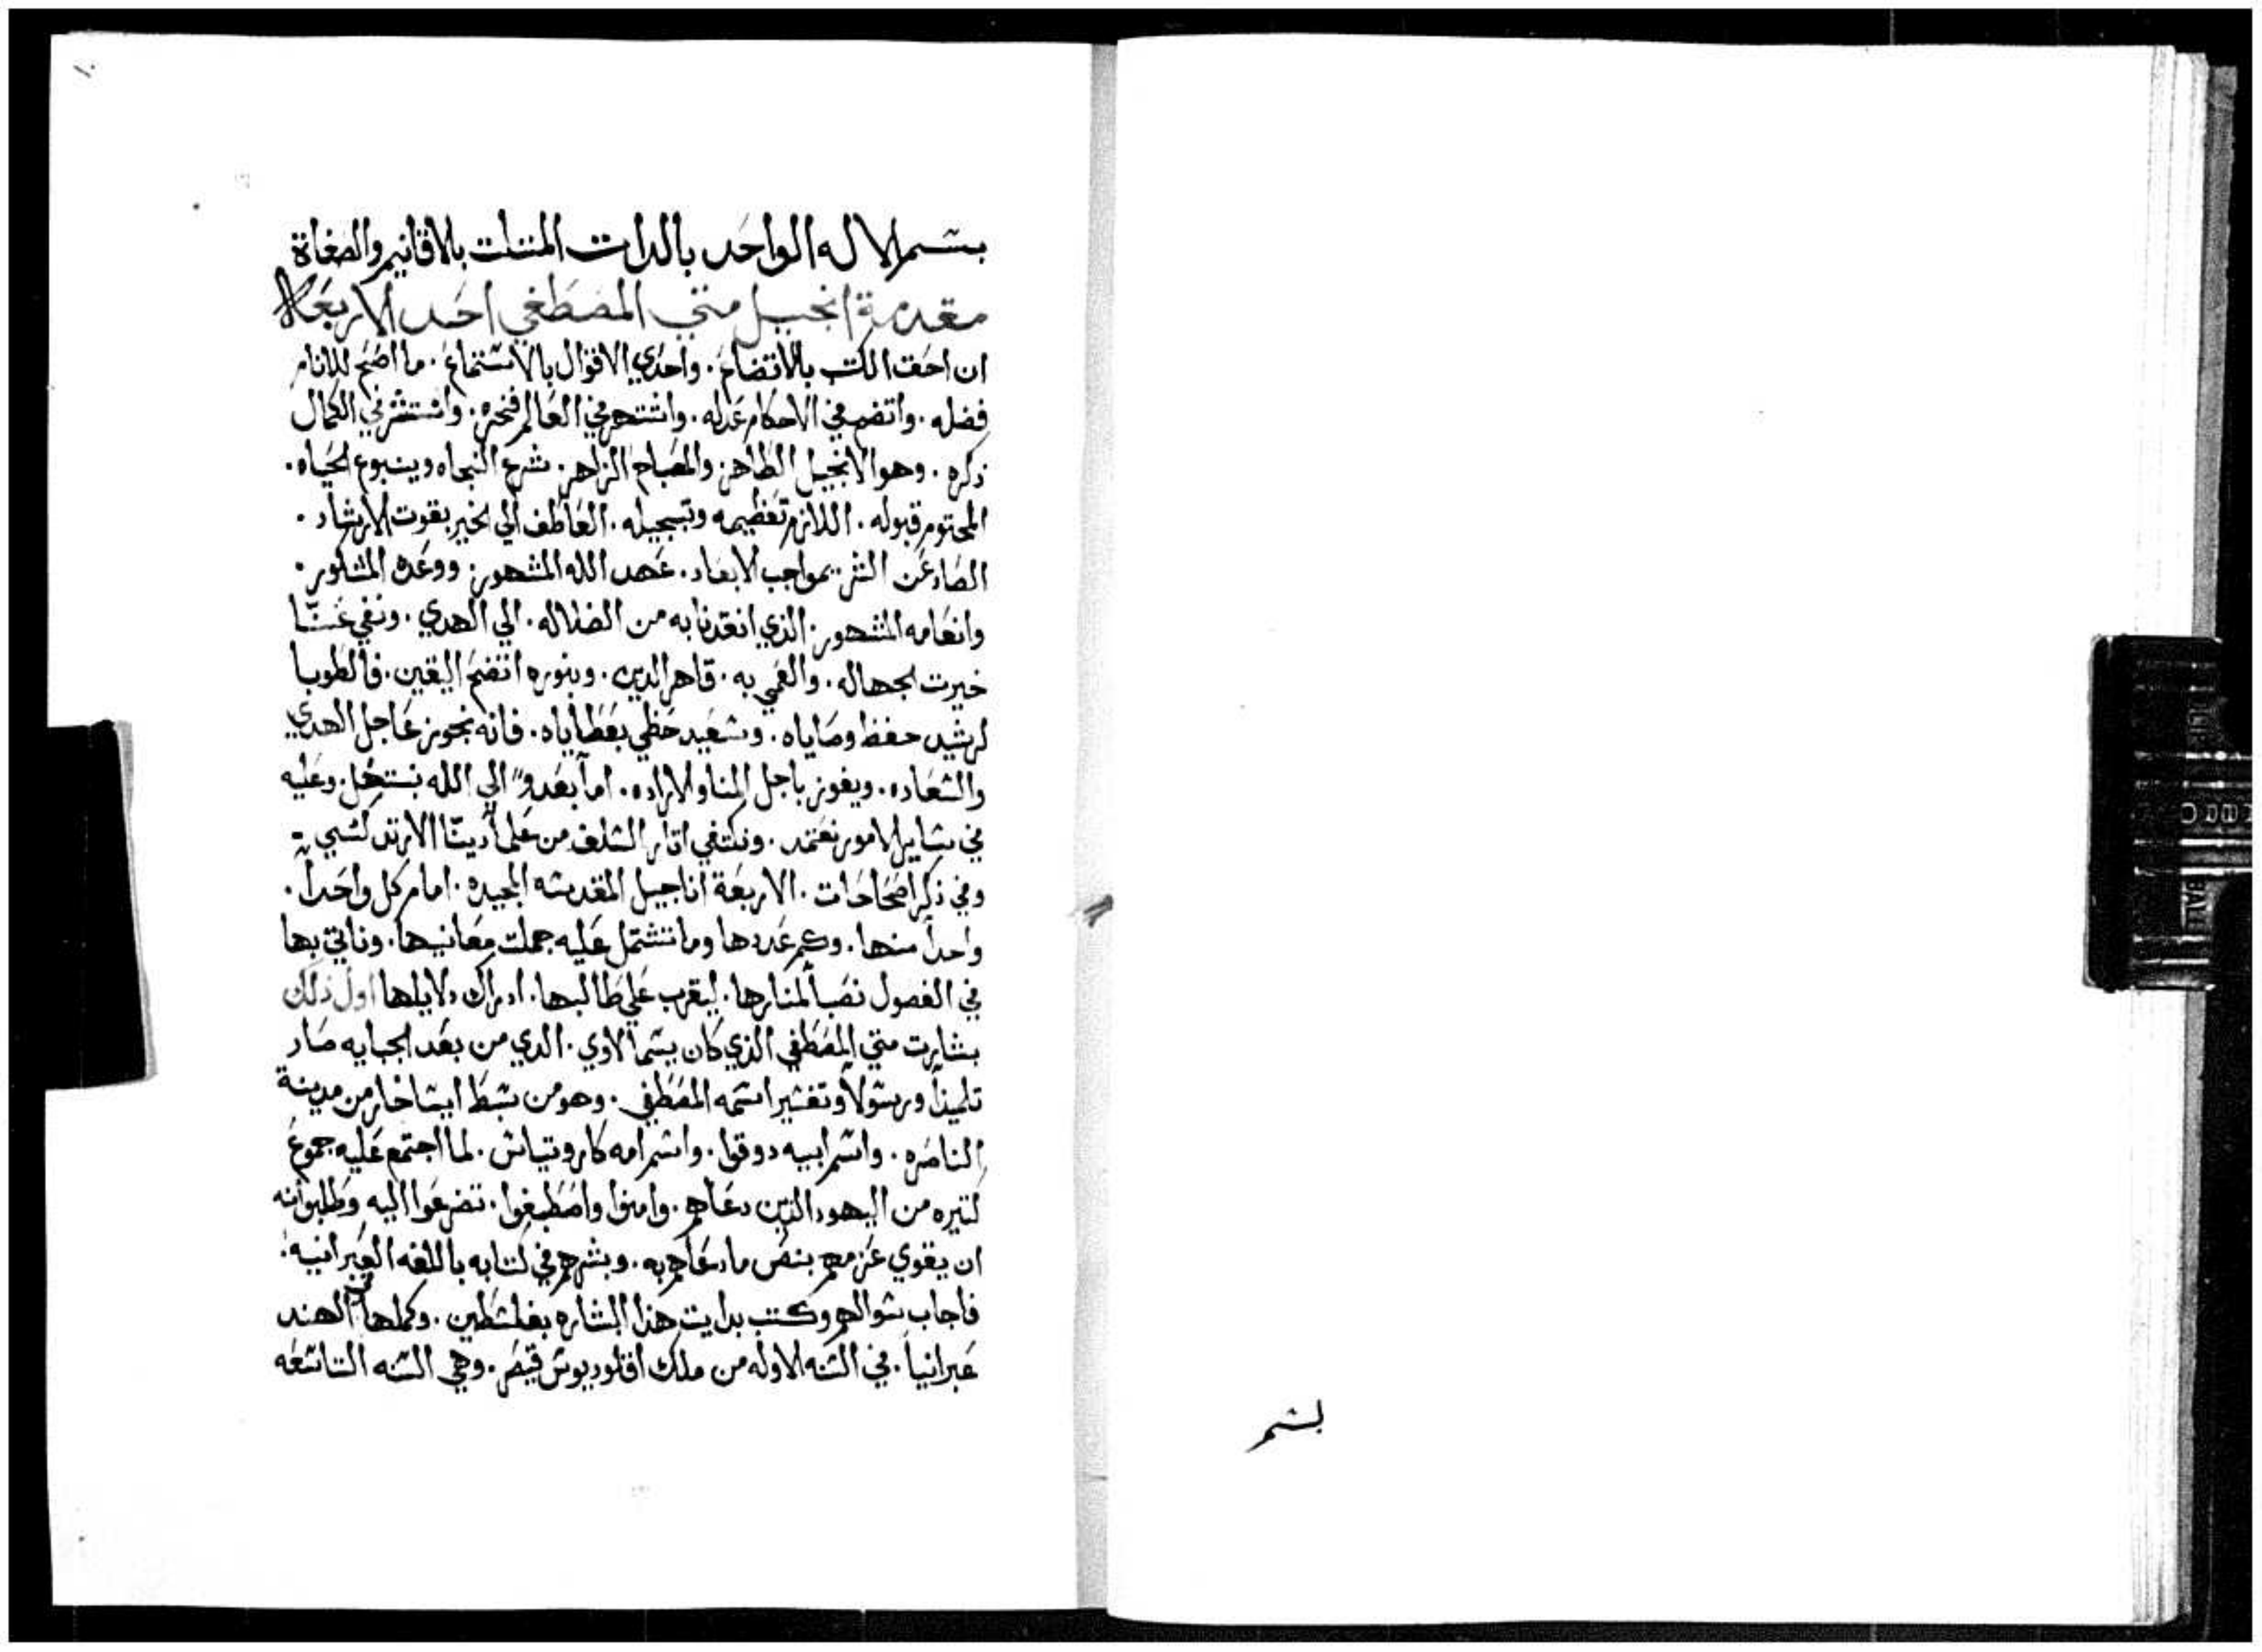 بشم
بسم الاله الواحد بالدات المتلت بالاقانيم والصفاة
مقدمة انجيل متي المصطفي احد الاربعة
ان احق الكتب بالاتضاع. واحدي الاقوال بالاستماع. ما اضح للانام
فضله. واتضح في الاحكام عدله. واشتهر في العالم فخره. وانتشر في الكمال
ذكره. وهو الانجيل الطاهر. والمصباح الزاهر. شرع النجاه وينبوع الحياه.
المحتوم قبوله. اللازم تعظيمه وتبجيله. العاطف الي الخير بقوت الارشاد.
الصاد عن الشر بمواجب الابعاد. عهد الله المشهور. ووعده المشكور.
وانعامه المشهور. الذي انقدنا به من الضلاله. الي الهدي. ونفي عنا
خيرت الجهاله. والعمي به. قاهر الدين. وبنوره اتضح اليقين. فالطوبا
لرشيد حفظ وصاياه. وسعيد حظي بعطاياه. فانه يحوز عاجل الهدي
والسعاده. ويفوز باجل المنا والاراده. اما بعد والي الله نستحل. وعليه
في سايرالامور نعتمد. ونكتفي اتار السلف من علما ديننا الارتدكسي
وفي ذكر اصحاحات. الاربعة اناجيل المقدسه المجيده. امام كل واحداً.
واحداً منها. وكم عددها وما تشتمل عليه جملت معانيها. وناتي بها
في الفصول نصباً لمنارها. ليقرب علي طالبها. ادراك دلايلها اول ذلك
بشارت متي المصطفي الذي كان يسما لاوي. الدي من بعد الجبايه صار
تلميذاً ورسولاً وتفسير اسمه المصطفي. وهو من سبط ايساخار من مدينة
الناصره. واسم ابيه دوقوا. واسم امه كاروتياس. لما اجتمع عليه جموع
كتيره من اليهود الذين دعاهم. وامنوا واصطبغوا. تضرعوا اليه وطلبوا منه
ان يقوي عزمهم بنص ما دعاهم به. وبشرهم في كتابه باللغه العبرانيه.
فاجاب سوالهم وكتب بدايت هذا البشاره بفلسطين. وكملها في الهند
عبرانياً. في السنه الاوله من ملك اقلوديوس قيصر. وهي السنه التاسعه